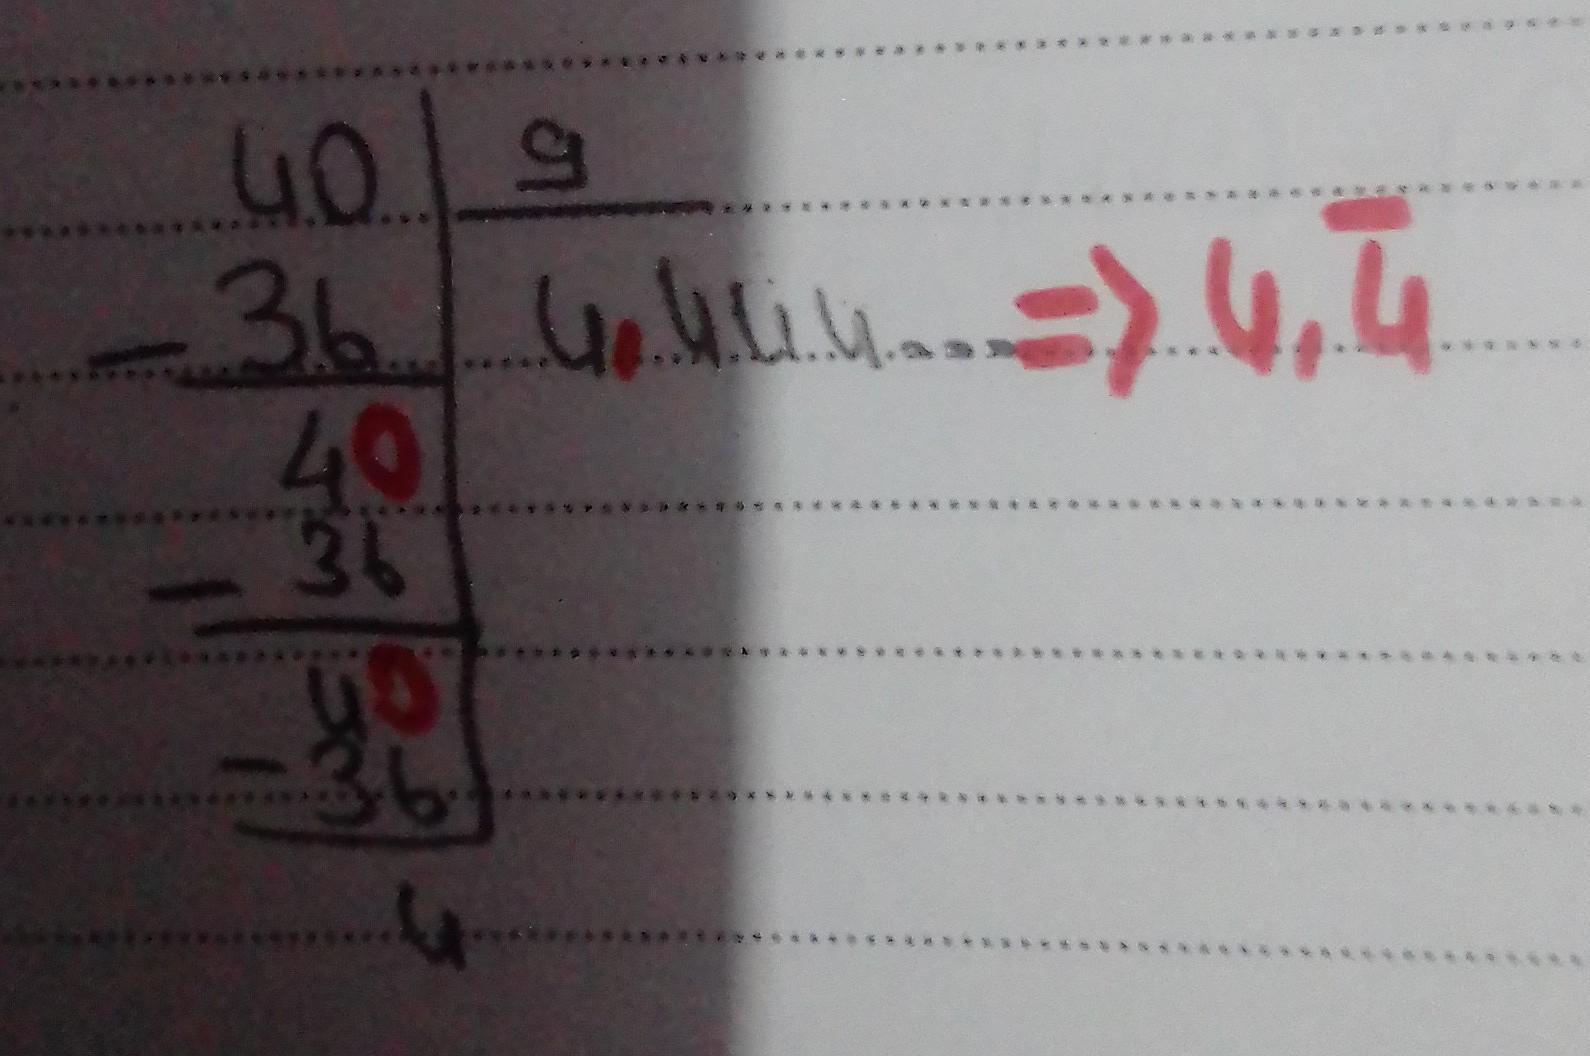 40 9
- 36 4.444.... => 4,4̅
40
- 36
40
- 36
4